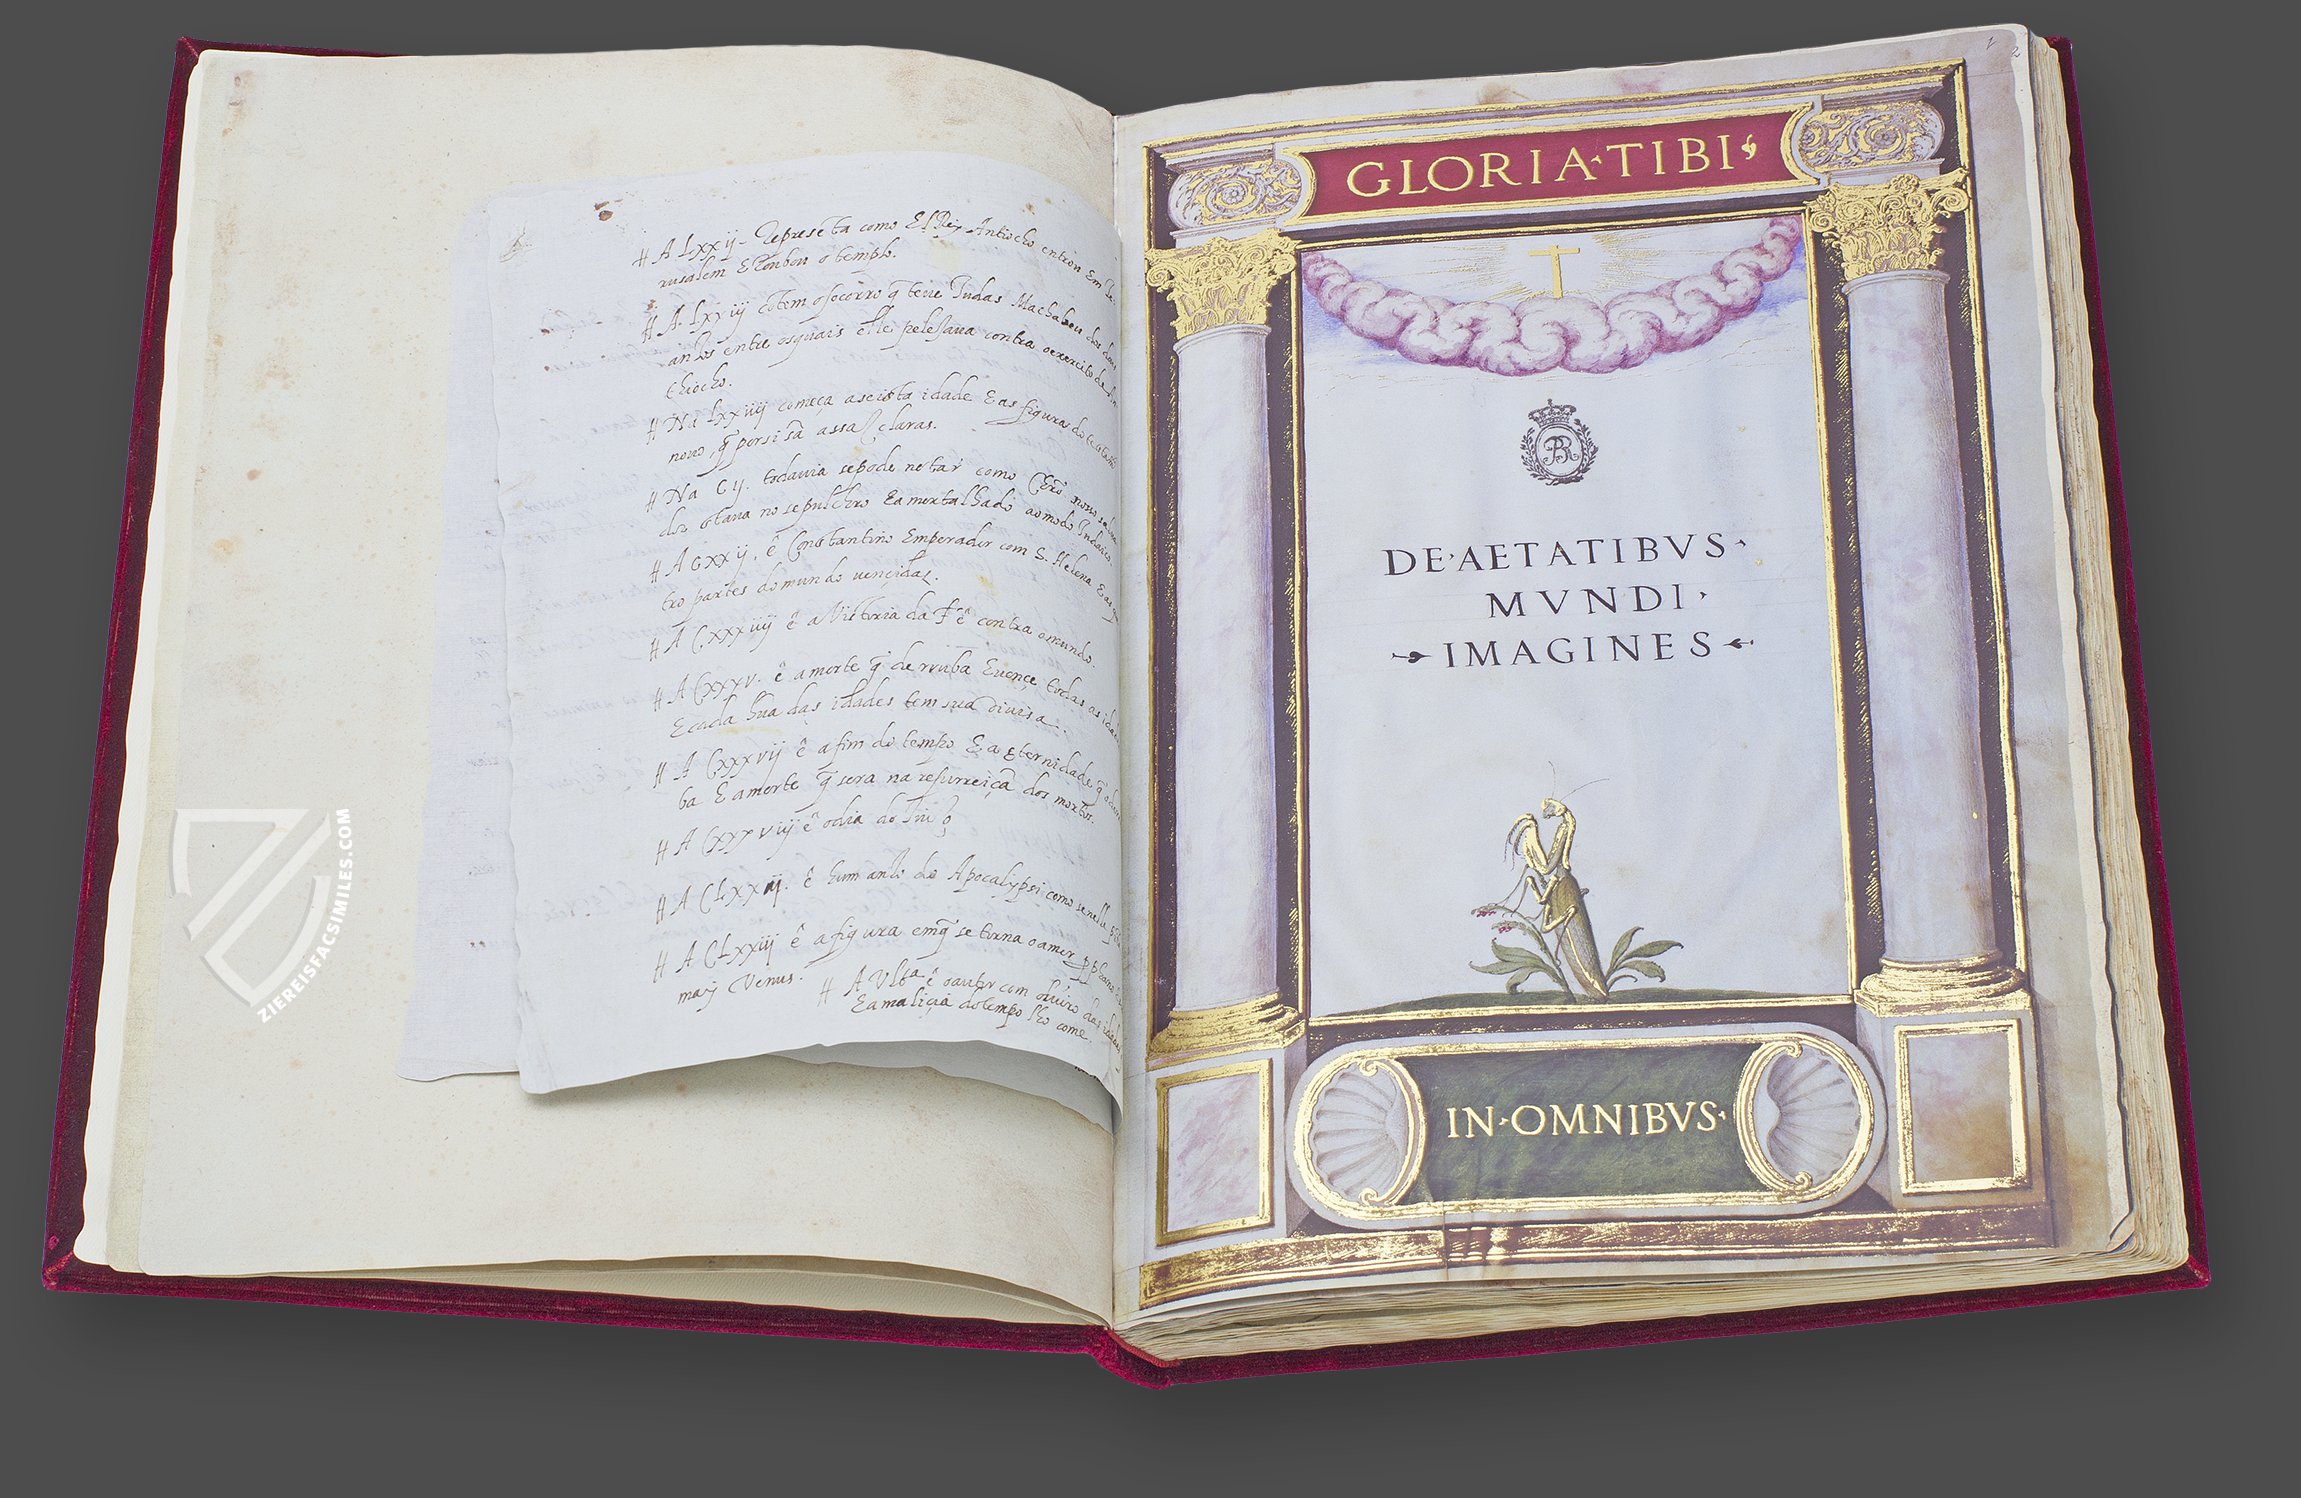 # A Lxxij - Represeta como El Rei Antiocho entrou Em Je
rusalem E Roubou o templo.
# A Lxxiij cotem o socorro q teve Judas Machabeu dos dous
anJos entre os quais elle peleJava contra o exercito de An
thiocho.
# Na Lxxiiij começa a seista idade E as figuras do testam
novo, q por si sã assaz claras.
# Na Cij. todavia se pode notar como nosso salva
dor estava no sepulchro Eamortalhado ao modo Judaico.
# A Cxxij. ê Constantino Emperador com S. Helena E as q
tro partes do mundo vençidas.
# A Cxxxiiij ê a Victoria da Fê contra o mundo.
# A Cxxxv. ê a morte q derruba E vençe todas as idades
E cada hũa das idades tem sua divisa.
# A Cxxxvij ê a fim do tempo E a Eternidade q o
ba E a morte q sera na resurreiçã dos mortos.
# A Cxxxviij ê o dia do Juizo
# A CLxxij. ê hum anJo do Apocalypsi como se nelle
# A CLxxiij ê a figura em q se torna o amor
maj Venus.
# A Vltª ê o autor com o livro das idades
E a malicia do tempo lho come.
GLORIA·TIBI
1 2
BR
DE·AETATIBVS·
MVNDI·
IMAGINES
IN·OMNIBVS·
ZIEREISFACSIMILES.COM